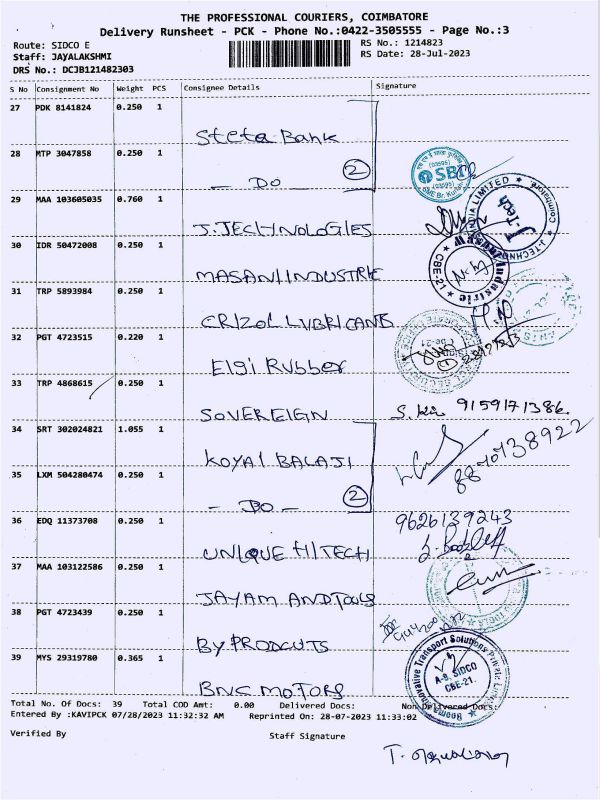 THE PROFESSIONAL COURIERS, COIMBATORE
Delivery Runsheet - PCK - Phone No.:0422-3505555 - Page No.:3
Route: SIDCO E
RS No.: 1214823
Staff: JAYALAKSHMI
RS Date: 28-Jul-2023
DRS No.: DCJB121482303
S No Consignment No Weight PCS Consignee Details Signature
27 PDK 8141824 0.250 1
Steta Bank
28 MTP 3047858 0.250 1
- DO - 2
SBI
29 MAA 103605035 0.760 1
J.TECHNOLOGIES
J-Tech
30 IDR 50472008 0.250 1
MASANI INDUSTRIE
CBE-21
31 TRP 5893984 0.250 1
CRIZOL LUBRICANTS
32 PGT 4723515 0.220 1
Elgi Rubber
33 TRP 4868615 0.250 1
SOVEREIGN 9159171386.
34 SRT 302024821 1.055 1
KOYAI BALAJI
35 LXM 504280474 0.250 1
- DO - 2
36 EDQ 11373708 0.250 1
9626139243
UNIQUE HITECH
37 MAA 103122586 0.250 1
JAYAM AND TOOLS
38 PGT 4723439 0.250 1
BY PRODCUTS
39 MYS 29319780 0.365 1
Innovative Transport Solutions Private Limited
A-9, SIDCO
CBE-21.
BNG MOTORS
Total No. Of Docs: 39 Total COD Amt: 0.00 Delivered Docs: Non Delivered Docs:
Entered By :KAVIPCK 07/28/2023 11:32:32 AM Reprinted On: 28-07-2023 11:33:02
Verified By Staff Signature